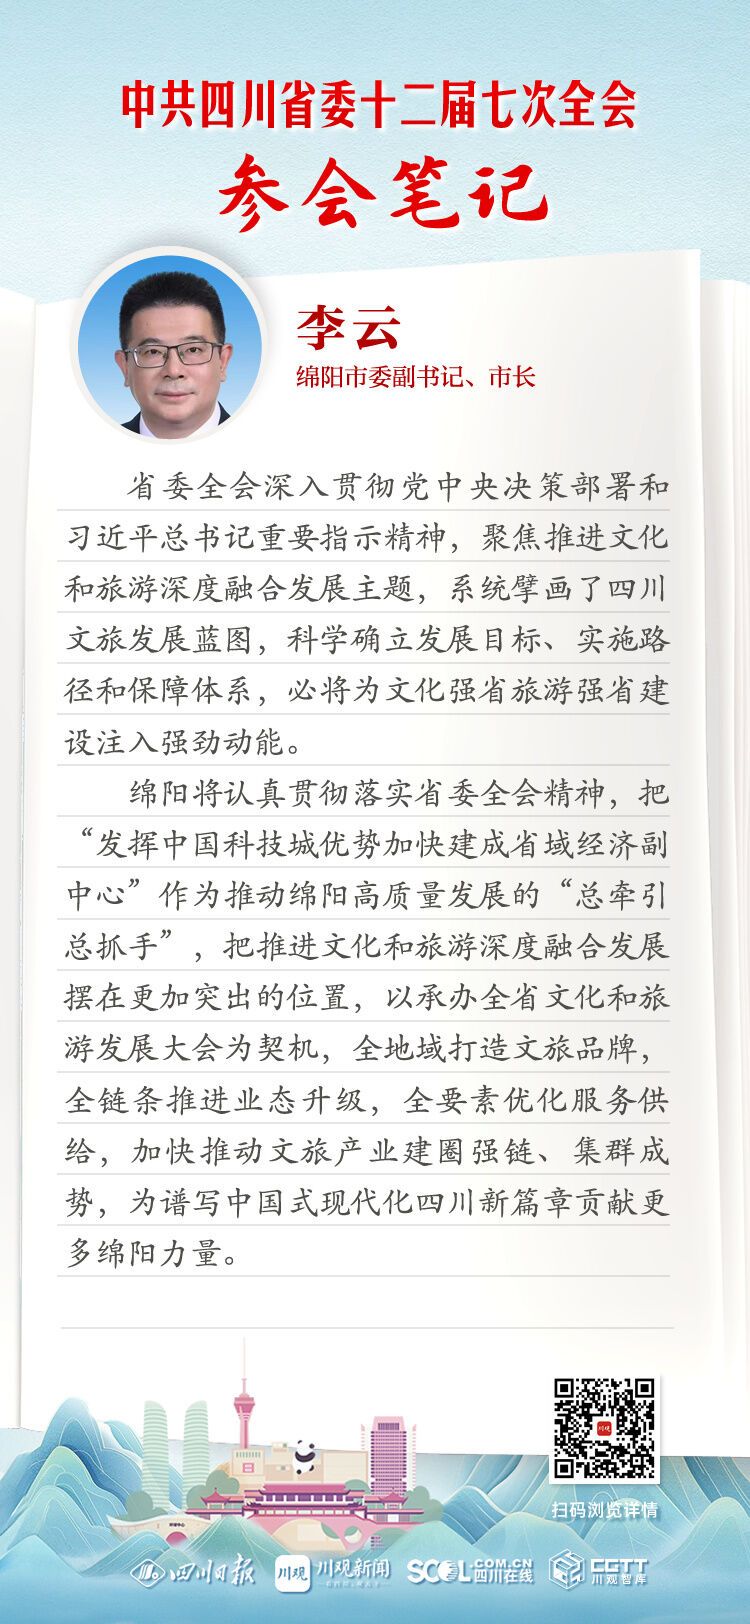 中共四川省委十二届七次全会
参会笔记
李云
绵阳市委副书记、市长
省委全会深入贯彻党中央决策部署和
习近平总书记重要指示精神，聚焦推进文化
和旅游深度融合发展主题，系统擘画了四川
文旅发展蓝图，科学确立发展目标、实施路
径和保障体系，必将为文化强省旅游强省建
设注入强劲动能。
绵阳将认真贯彻落实省委全会精神，把
“发挥中国科技城优势加快建成省域经济副
中心”作为推动绵阳高质量发展的“总牵引
总抓手”，把推进文化和旅游深度融合发展
摆在更加突出的位置，以承办全省文化和旅
游发展大会为契机，全地域打造文旅品牌，
全链条推进业态升级，全要素优化服务供
给，加快推动文旅产业建圈强链、集群成
势，为谱写中国式现代化四川新篇章贡献更
多绵阳力量。
川观
扫码浏览详情
四川日报
川观
川观新闻
SCOL.COM.CN
四川在线
CGTT
川观智库